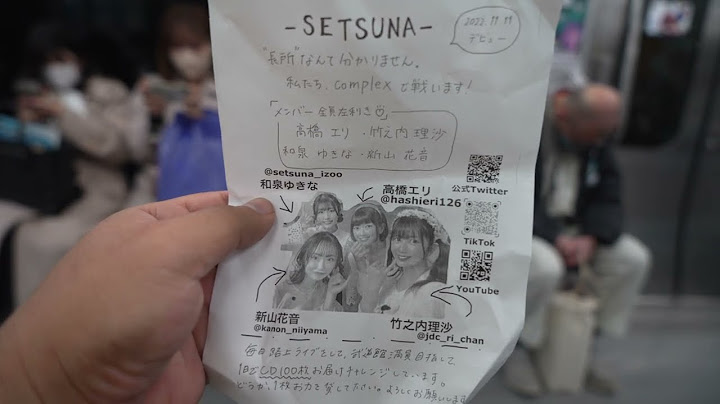 -SETSUNA-
2022.11.11
デビュー
"長所"なんて分かりません。
私たち、complexと戦います!
「メンバー全員左利き」
高橋エリ・竹之内理沙
和泉ゆきな・新山花音
@setsuna_izoo
和泉ゆきな
高橋エリ
@hashieri126
公式Twitter
TikTok
YouTube
新山花音
@kanon_niiyama
竹之内理沙
@jdc_ri_chan
毎日路上ライブをして、武道館満員目指して
1日CD100枚お届けチャレンジしています。
どうか1枚お力を貸してください。よろしくお願いします